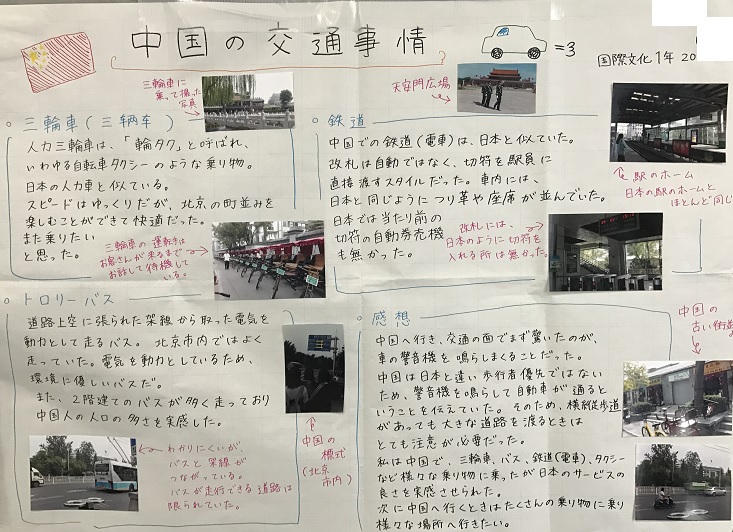 中国の交通事情
=3
国際文化1年 20
三輪車に
乗って撮った
写真
天安門広場
三輪車(三辆车)
人力三輪車は、「輪タク」と呼ばれ、
いわゆる自転車タクシーのような乗り物。
日本の人力車と似ている。
スピードはゆっくりだが、北京の町並みを
楽しむことができて快適だった。
また乗りたい
と思った。
三輪車の運転手は
お客さんが来るまで
お話して待機して
いる。
鉄道
中国での鉄道(電車)は、日本と似ていた。
改札は自動ではなく、切符を駅員に
直接渡すスタイルだった。車内には、
日本と同じようにつり革や座席が並んでいた。
日本では当たり前の
切符の自動券売機
も無かった。
駅のホーム
日本の駅のホームと
ほとんど同じ
改札には、
日本のように切符を
入れる所は無かった。
トロリーバス
道路上空に張られた架線から取った電気を
動力として走るバス。北京市内ではよく
走っていた。電気を動力としているため、
環境に優しいバスだ。
また、2階建てのバスが多く走っており
中国人の人口の多さを実感した。
わかりにくいが、
バスと架線が
つながっている。
バスが走行できる道路は
限られていた。
中国の
標式
(北京
市内)
感想
中国へ行き、交通の面でまず驚いたのが、
車の警音機を鳴らしまくることだった。
中国は日本と違い歩行者優先ではない
ため、警音機を鳴らして自動車が通ると
いうことを伝えていた。そのため、横断歩道
があっても大きな道路を渡るときは
とても注意が必要だった。
私は中国で、三輪車、バス、鉄道(電車)、タクシー
など様々な乗り物に乗ったが日本のサービスの
良さを実感させられた。
次に中国へ行くときはたくさんの乗り物に乗り
様々な場所へ行きたい。
中国の
古い街並